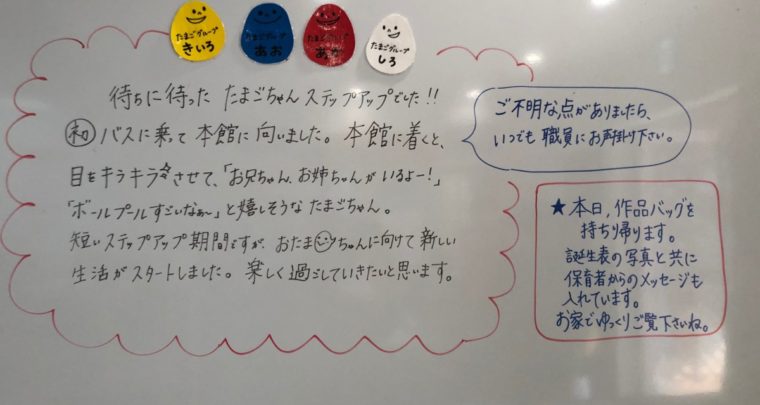 たまごグループ
きいろ
たまごグループ
あお
たまごグループ
あか
たまごグループ
しろ
待ちに待った たまごちゃん ステップアップでした!!
初 バスに乗って 本館に向いました。本館に着くと、
目をキラキラ☆させて、「お兄ちゃん、お姉ちゃんがいるよー!」
「ボールプールすごいなぁ〜」と嬉しそうな たまごちゃん。
短いステップアップ期間ですが、おたまちゃんに向けて新しい
生活がスタートしました。楽しく過ごしていきたいと思います。
ご不明な点がありましたら、
いつでも 職員にお声掛け下さい。
★本日、作品バッグを
持ち帰ります。
誕生表の写真と共に
保育者からのメッセージも
入れています。
お家でゆっくりご覧下さいね。